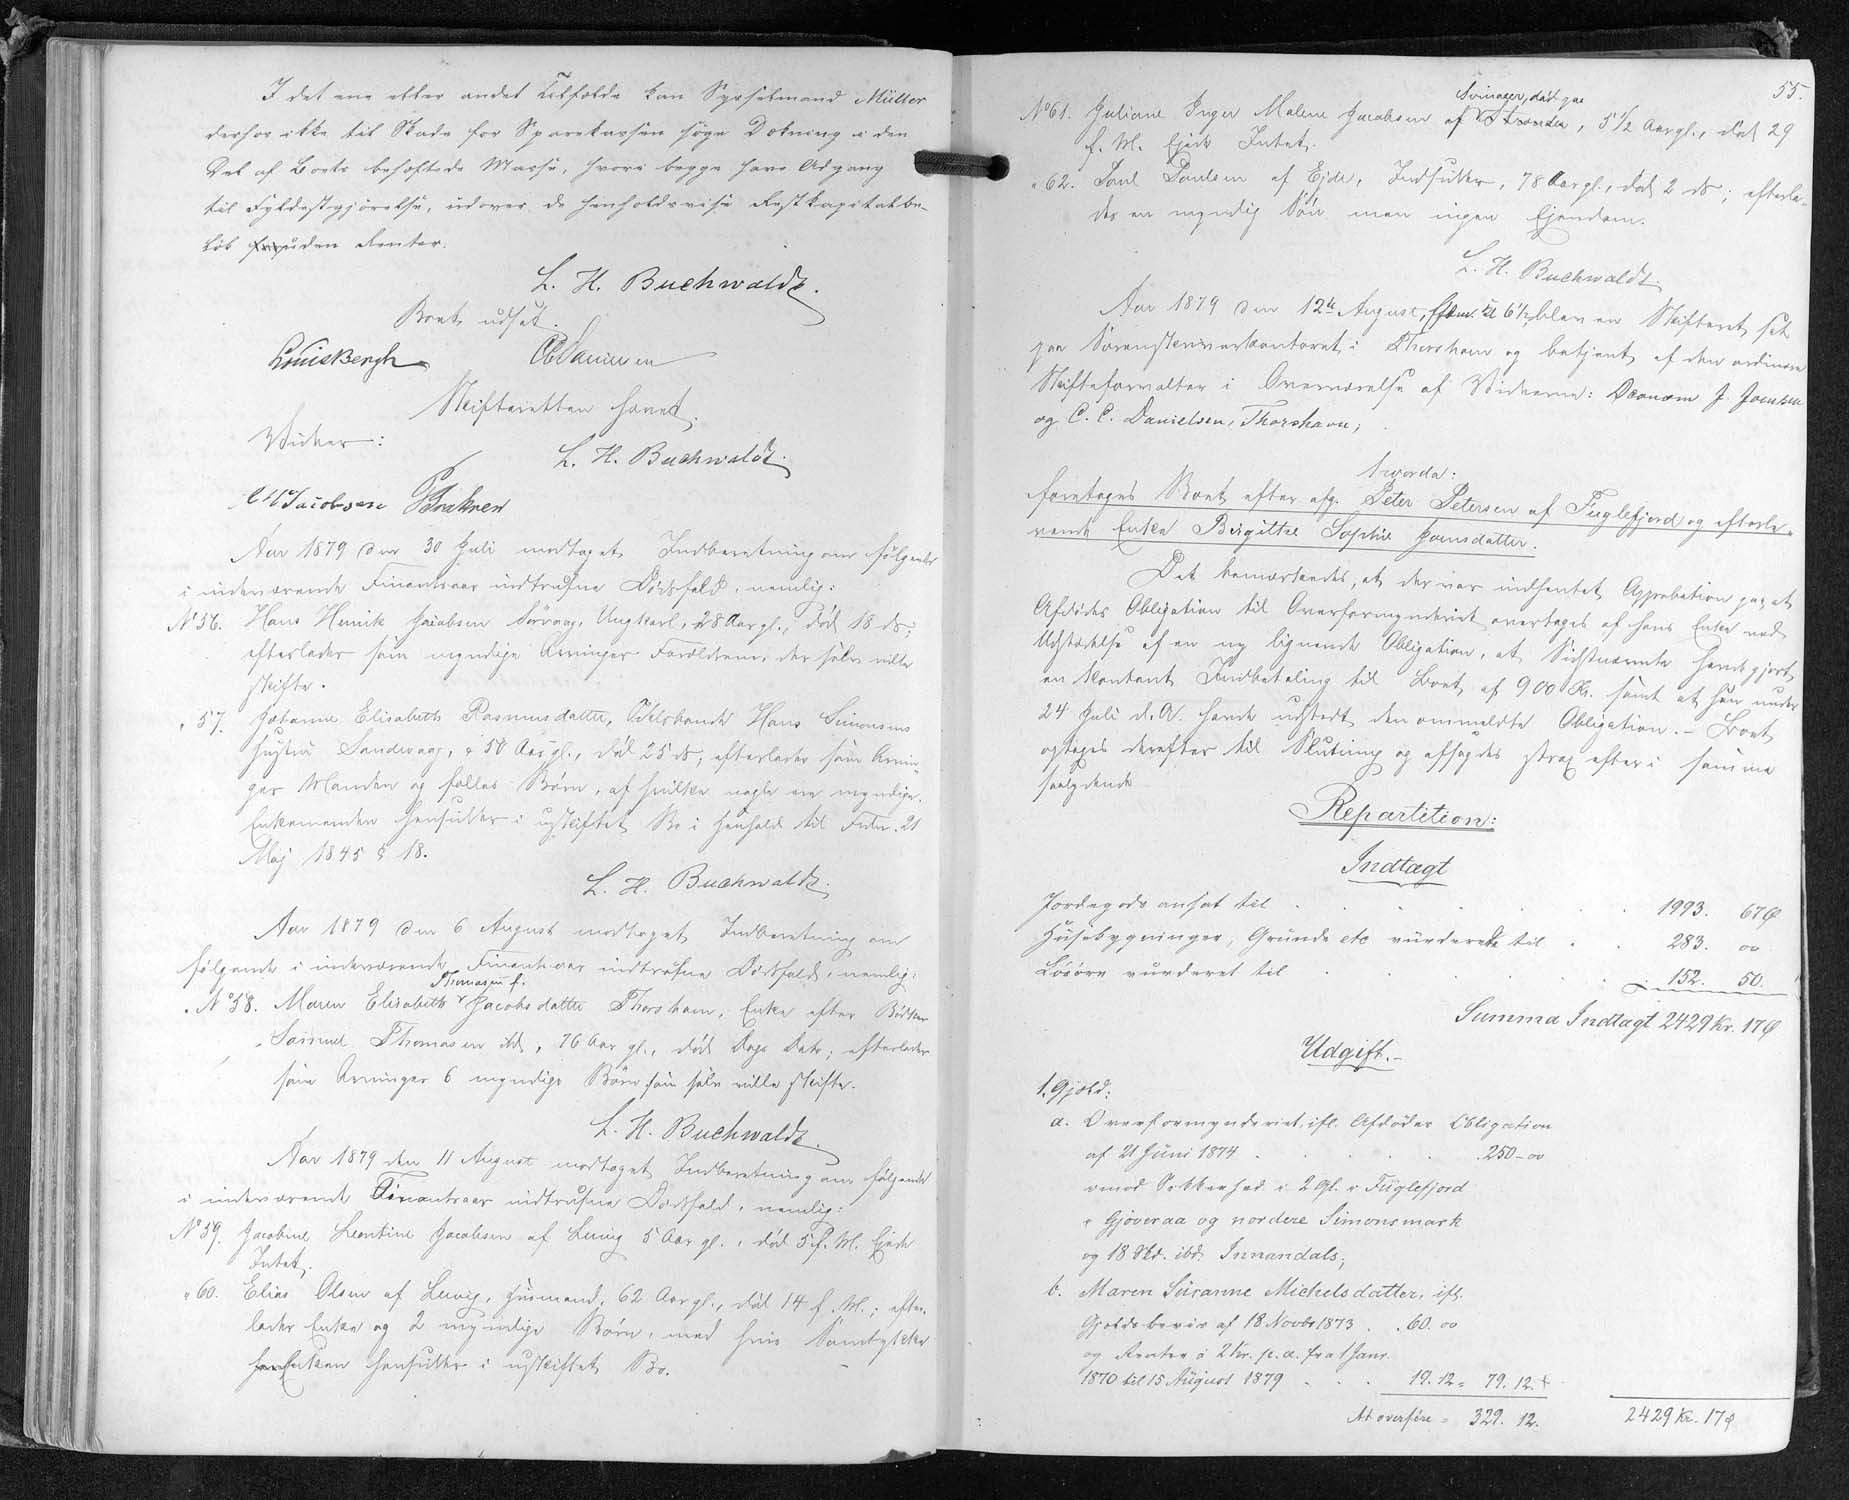 I det ene eller andet Tilfælde kan Sysselmand Müller
derfor ikke til Skade for Sparekassen søge Dækning i den
Del af Boets behæftede Masse, hvori begge have Adgang
til Fyldestgjørelse, udover de henholdsvise Restkapitalbe-
løb foruden Renter.
L. H. Buchwaldt.
Boet udsat.
Louis Bergh
Skifteretten hævet.
Vidner:
L. H. Buchwaldt.
Jacobsen
Aar 1879 den 30 Juli modtaget Indberetning om følgende
i indeværende Finantsaar indtrufne Dødsfald, nemlig:
No 56. Hans Henrik Jacobsen Sörvaag, Ungkarl, 28 Aar gl., død 18 ds;
efterlader som myndige Arvinger Forældrene, der selv ville
skifte.
" 57. Johanne Elisabeth Rasmusdatter, Odelsbonde Hans Simonsens
Hustru Sandevaag, 50 Aar gl., död 25 ds; efterlader som Arvin-
ger Manden og fælles Börn, af hvilke nogle ere myndige.
Enkemanden hensidder i uskiftet Bo i Henhold til Frdn. 21
Maj 1845 § 18.
L. H. Buchwaldt.
Aar 1879 den 6 August modtaget Indberetning om
følgende i indeværende Finantsaar indtrufne Dödsfald, nemlig:
Thomasen f.
No 58. Maren Elisabeth Jacobsdatter Thorshavn, Enke efter Bödker
Samuel Thomasen ibd, 76 Aar gl., död Dags Dato; efterlader
som Arvinger 6 myndige Börn som selv ville skifte.
L. H. Buchwaldt.
Aar 1879 den 11 August modtaget Indberetning om følgende
i indeværende Finantsaar indtrufne Dödsfald, nemlig:
No 59. Jacobine Leontine Jacobsen af Lervig 5 Aar gl., död 5 f. M. Ejede
Intet.
" 60. Elias Olsen af Lervig, Husmand, 62 Aar gl., död 14 f. M.; efter-
lader Enke og 2 myndige Börn, med hvis Samtykke
Enken hensidder i uskiftet Bo.
55.
Svinaaer, död paa
No 61. Juliane Inger Malene Jacobsen af Strender, 5 1/2 Aar gl., död 29
f. M. Ejede Intet.
" 62. Poul Poulsen af Ejde, Indsidder, 78 Aar gl., död 2 ds; efterla-
der en myndig Sön men ingen Ejendom.
L. H. Buchwaldt
Aar 1879 den 12te August, Eftm. Kl 6 1/2 blev en Skifteret sat
paa Sorenskriverkontoret i Thorshavn og betjent af den ordinære
Skifteforvalter i Overværelse af Vidnerne: Oeconom J. Joensen
og C. C. Danielsen, Thorshavn;
hvorda:
foretoges Boet efter afg. Peter Petersen af Fuglefjord og efterle-
vende Enke Birgitte Sophie Joensdatter.
Det bemærkedes, at der var indhentet Approbation paa, at
Afdødes Obligation til Overformynderiet overtoges af hans Enke ved
Udstædelse af en ny lignende Obligation, at Sidstnævnte havde gjort
en kontant Indbetaling til Boet af 900 Kr. samt at hun under
24 Juli d. A. havde udstedt den ommeldte Obligation. - Boet
optoges derefter til Slutning og afsagdes strax efter i samme
saalydende
Repartition:
Indtægt
Jordegods ansat til . . . 1993. 67 Ø
Husebygninger, Grunde etc vurderede til . . 283. 00
Lösöre vurderet til . . . 152. 50.
Summa Indtægt 2429 Kr. 17 Ø
Udgift.-
1. Gjæld:
a. Overformynderiet ifl. Afdødes Obligation
af 21 Juni 1874 . . . 250-00
imod Sikkerhed i 2 Gl. i Fuglefjord
" Gjøveraa og nordere Simonsmark
og 18 Skd. ibd. Innandals;
b. Maren Susanne Michelsdatter, ifl.
Gjældsbevis af 18 Novbr 1873 . . 60. 00
og Renter à 2 Kr. p. a. fra 1 Janr.
1870 til 15 August 1879 . . . 19. 12 = 79. 12.
At overføre = 329. 12. 2429 Kr. 17 Ø